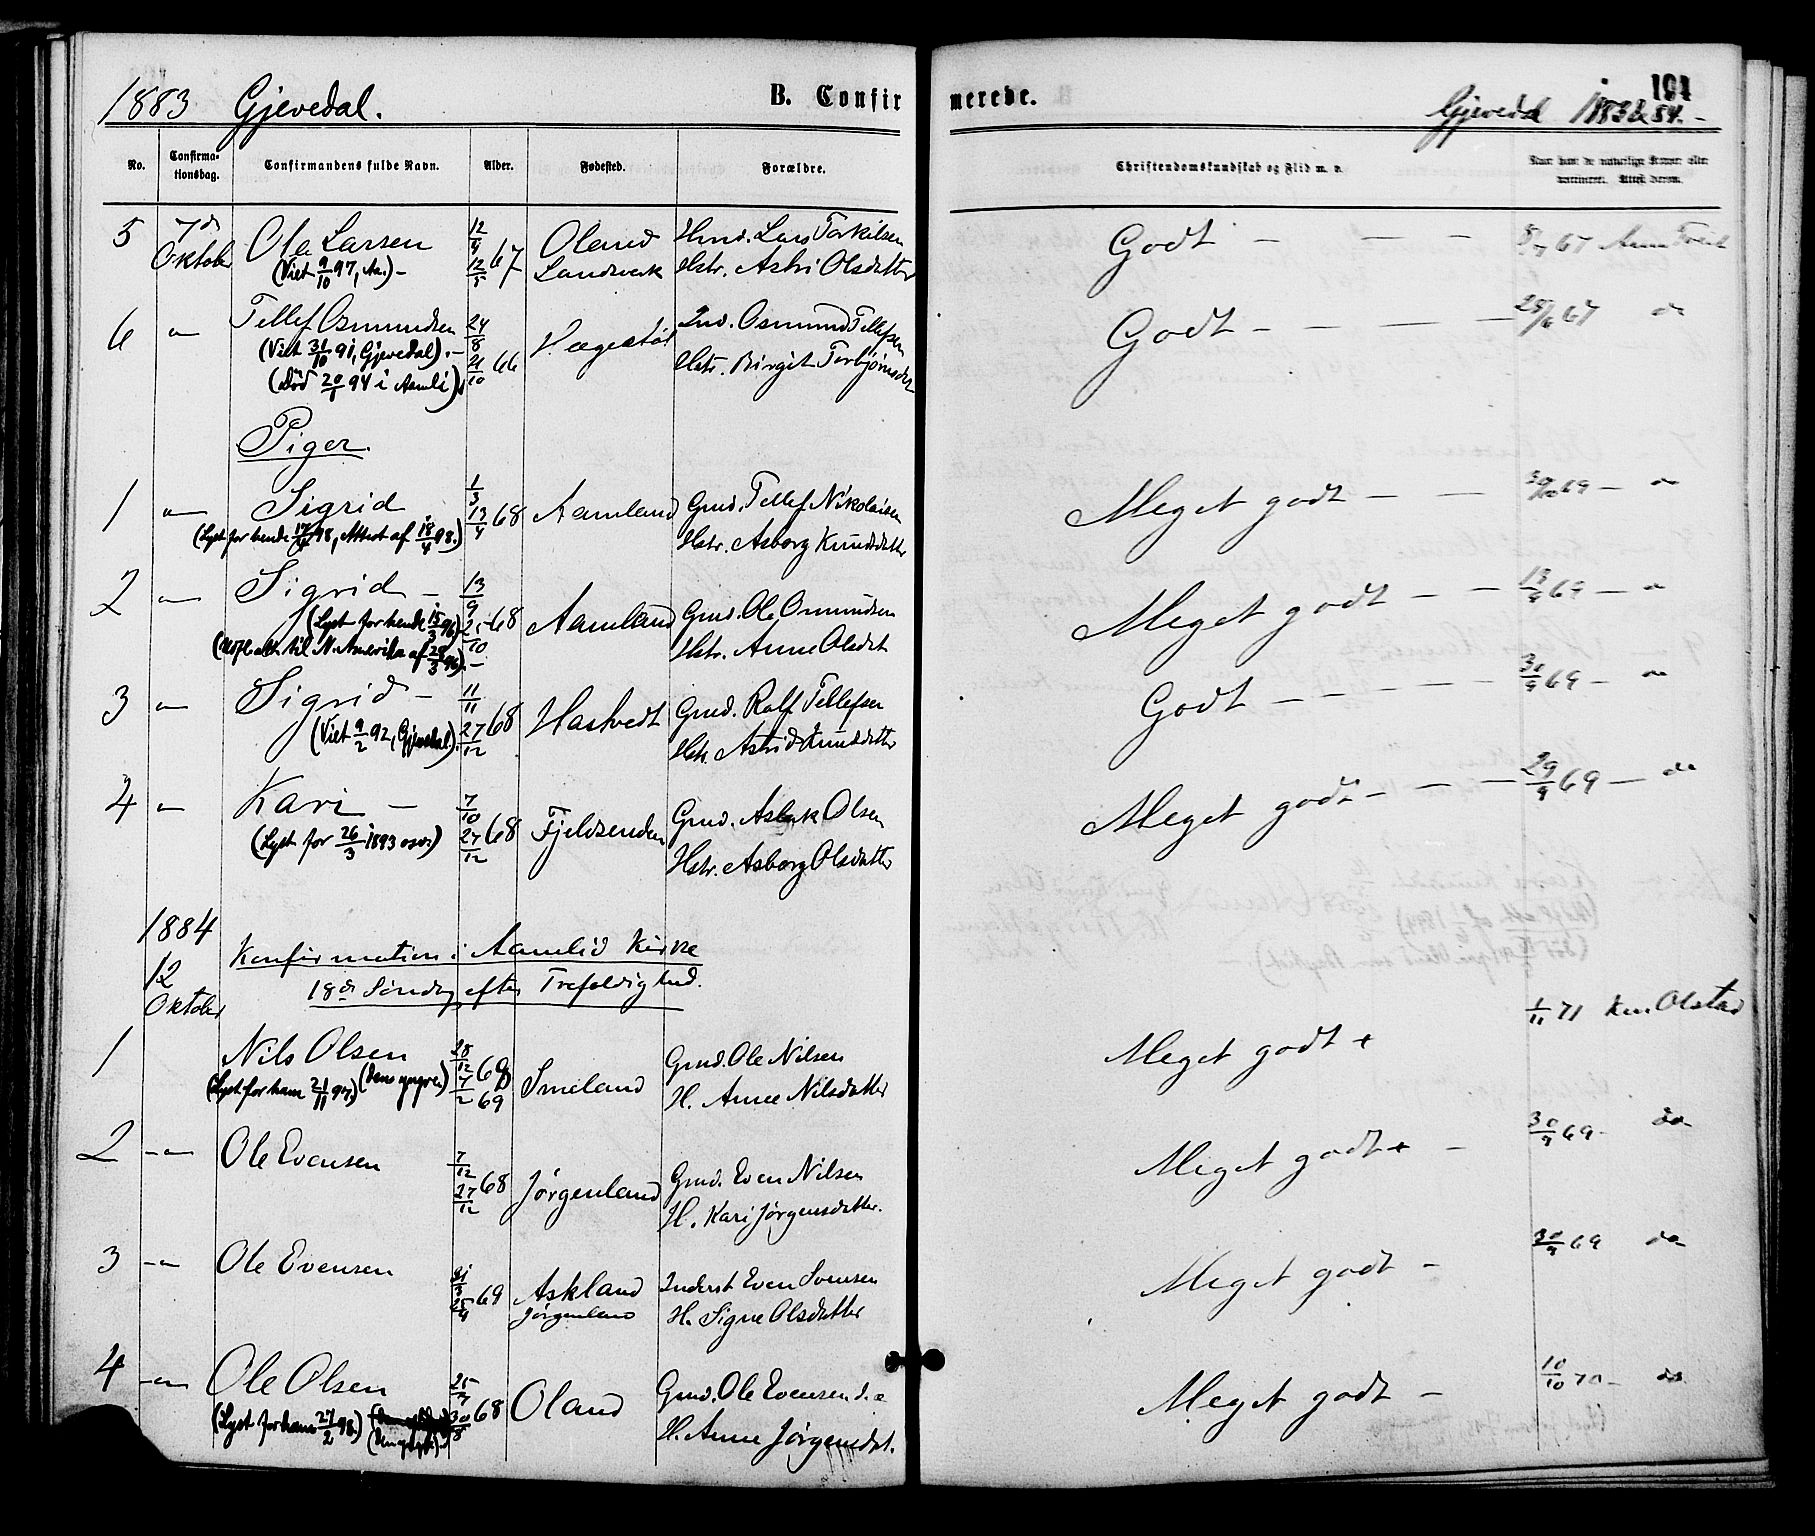 1883 Gjevedal. B. Confirmerede. 191
Gjevedal 1883 & 84.-
No. Confirmationsdag. Confirmandens fulde Navn. Alder. Fødested. Forældre. Christendomskundskab og Flid m. v. Naar havt de naturlige Kopper eller vaccineret. Attest derom.
5 7de Oktober Ole Larsen 12/4 12/5 67 Oland Landverk Gmd. Lars Torkilsen Hstr. Astri Olsdatter Godt — — — 8/7 67
(Viet 9/10 97, Aa.) –
6 " Tellef Osmundsen 24/8 21/10 66 Hægestøl Ind. Osmund Tellefsen Hstr. Birgit Torbjørnsdat Godt — — — 28/6 67 do
(Viet 31/10 91, Gjevedal). –
(død 20/8 94 i Aamli)
Piger.
1 " Sigrid 1/3 13/4 68 Aamland Gmd. Tellef Nikolaisen Hstr. Asborg Knudsdatter Meget godt — — 30/10 69 — do
(Lyst for hende 17/4 98, Attest af 18/4 98.)
2 " Sigrid — 13/9 25/10 68 Aamland Gmd. Ole Osmundsen Hstr. Anne Olsdat Meget godt — — 13/9 69 — do
(Lyst for hende 15/3 96)
(Udfl. att. til N. Amerika af 28/3 96). –
3 " Sigrid — 11/11 27/12 68 Hastvedt Gmd. Rolf Tellefsen Hstr. Astrid Knudsdatter Godt — — — 30/9 69 — do
(Viet 9/2 92, Gjevedal).
4 " Kari — 7/10 27/12 68 Fjeldsenden Gmd. Aslak Olsen Hstr. Asborg Olsdatter Meget godt — — — 29/9 69 — do
(Lyst for 26/3 1893 osv.)
1884
12 Oktober
Konfirmation i Aamlid Kirke
18de Søndag efter Trefoldighed.
1 Nils Olsen 28/12 68 7/2 69 Smeland Gmd. Ole Nilsen H. Anne Nilsdatter Meget godt + 1/11 71 Kon Olstad
(Lyst for ham 21/11 97.) (den yngre)
2 — " Ole Evensen 7/12 27/12 68 Jørgenland Gmd. Even Nilsen H. Kari Jørgensdatter. Meget godt + — 30/9 69 — do
3 — " Ole Evensen 31/3 25/4 69 Askland Jørgenland Inderst Even Svensen H. Signe Olsdatter Meget godt — 30/9 69 do
4 — " Ole Olsen 25/7 30/8 68 Oland Gmd. Ole Evensen d. æ H. Anne Jørgensdat. Meget godt — 10/10 70 — do
(Lyst for ham 27/2 98.)